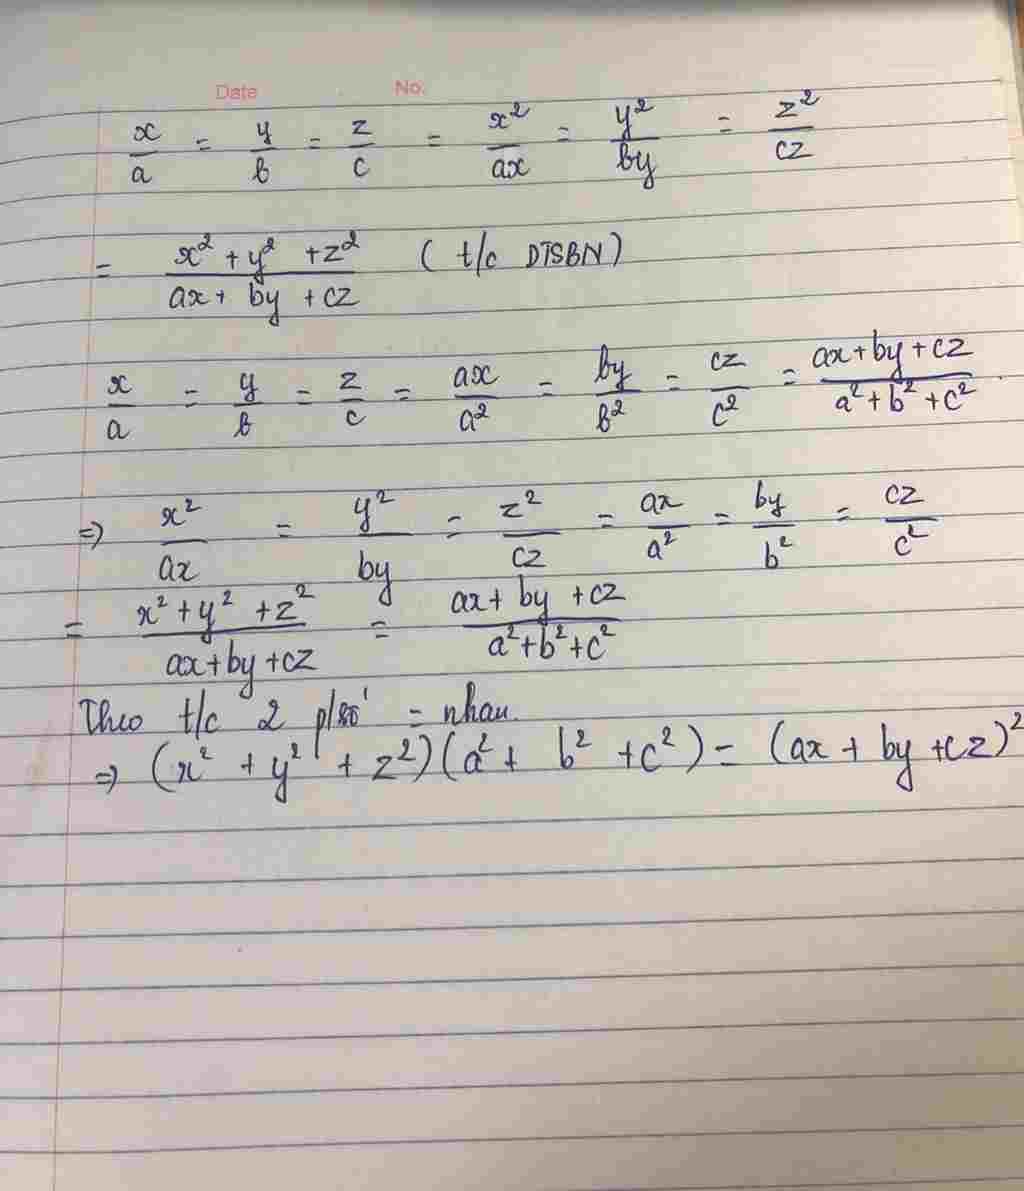 Date No.
x/a = y/b = z/c = x²/ax = y²/by = z²/cz
= (x² + y² + z²)/(ax + by + cz) ( t/c DTSBN)
x/a = y/b = z/c = ax/a² = by/b² = cz/c² = (ax + by + cz)/(a² + b² + c²)
=> x²/ax = y²/by = z²/cz = ax/a² = by/b² = cz/c²
= (x² + y² + z²)/(ax + by + cz) = (ax + by + cz)/(a² + b² + c²)
Theo t/c 2 p/số = nhau.
=> (x² + y² + z²)(a² + b² + c²) = (ax + by + cz)²